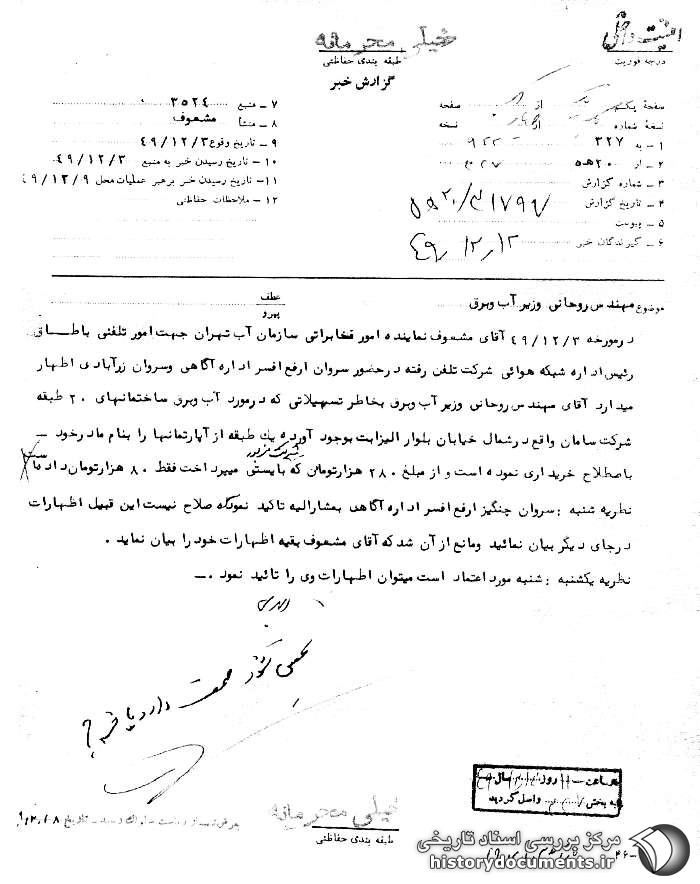 خیلی محرمانه
طبقه بندی حفاظتی
گزارش خبر
درجه فوریت
صفحهٔ یکم از صفحه
نسخهٔ شماره از نسخه
۱ – به ۳۲۷
۲ – از ۲۰ه۵
۳ – شماره گزارش
۴ – تاریخ گزارش
۵ – پیوست
۶ – گیرندگان خبر ۴۹/۱۲/۱۲
۷ – منبع ۳۵۲۴
۸ – منشأ مشعوف
۹ – تاریخ وقوع ۴۹/۱۲/۳
۱۰ – تاریخ رسیدن خبر به منبع ۴۹/۱۲/۳
۱۱ – تاریخ رسیدن خبر برهبر عملیات محل ۴۹/۱۲/۹
۱۲ – ملاحظات حفاظتی
موضوع مهندس روحانی وزیر آب وبرق
عطف
پیرو
درمورخه ۴۹/۱۲/۳ آقای مشعوف نماینده امور مخابراتی سازمان آب تهران جهت امور تلفنی باطاق
رئیس اداره شبکه هوائی شرکت تلفن رفته درحضور سروان ارفع افسر اداره آگاهی وسروان زرآبادی اظهار
میدارد آقای مهندس روحانی وزیر آب وبرق بخاطر تسهیلاتی که درمورد آب وبرق ساختمانهای ۲۰ طبقه
شرکت سامان واقع درشمال خیابان بلوار الیزابت بوجود آورده یك طبقه از آپارتمانها را بنام مادرخود –
باصطلاح خریداری نموده است و از مبلغ ۲۸۰ هزارتومان که بایستی میپرداخت فقط ۸۰ هزارتومان داده
نظریه شنبه : سروان چنگیز ارفع افسر اداره آگاهی بمشارالیه تاکید نمودکه صلاح نیست این قبیل اظهارات
درجای دیگر بیان نمائید ومانع از آن شد که آقای مشعوف بقیه اظهارات خود را بیان نماید .
نظریه یکشنبه : شنبه مورد اعتماد است میتوان اظهارات وی را تائید نمود .–
ساعت ۱۱ روز سال ۴۹
به بخش واصل گردید
خیلی محرمانه
طبقه بندی حفاظتی
مرکز بررسی اسناد تاریخی
historydocuments.ir